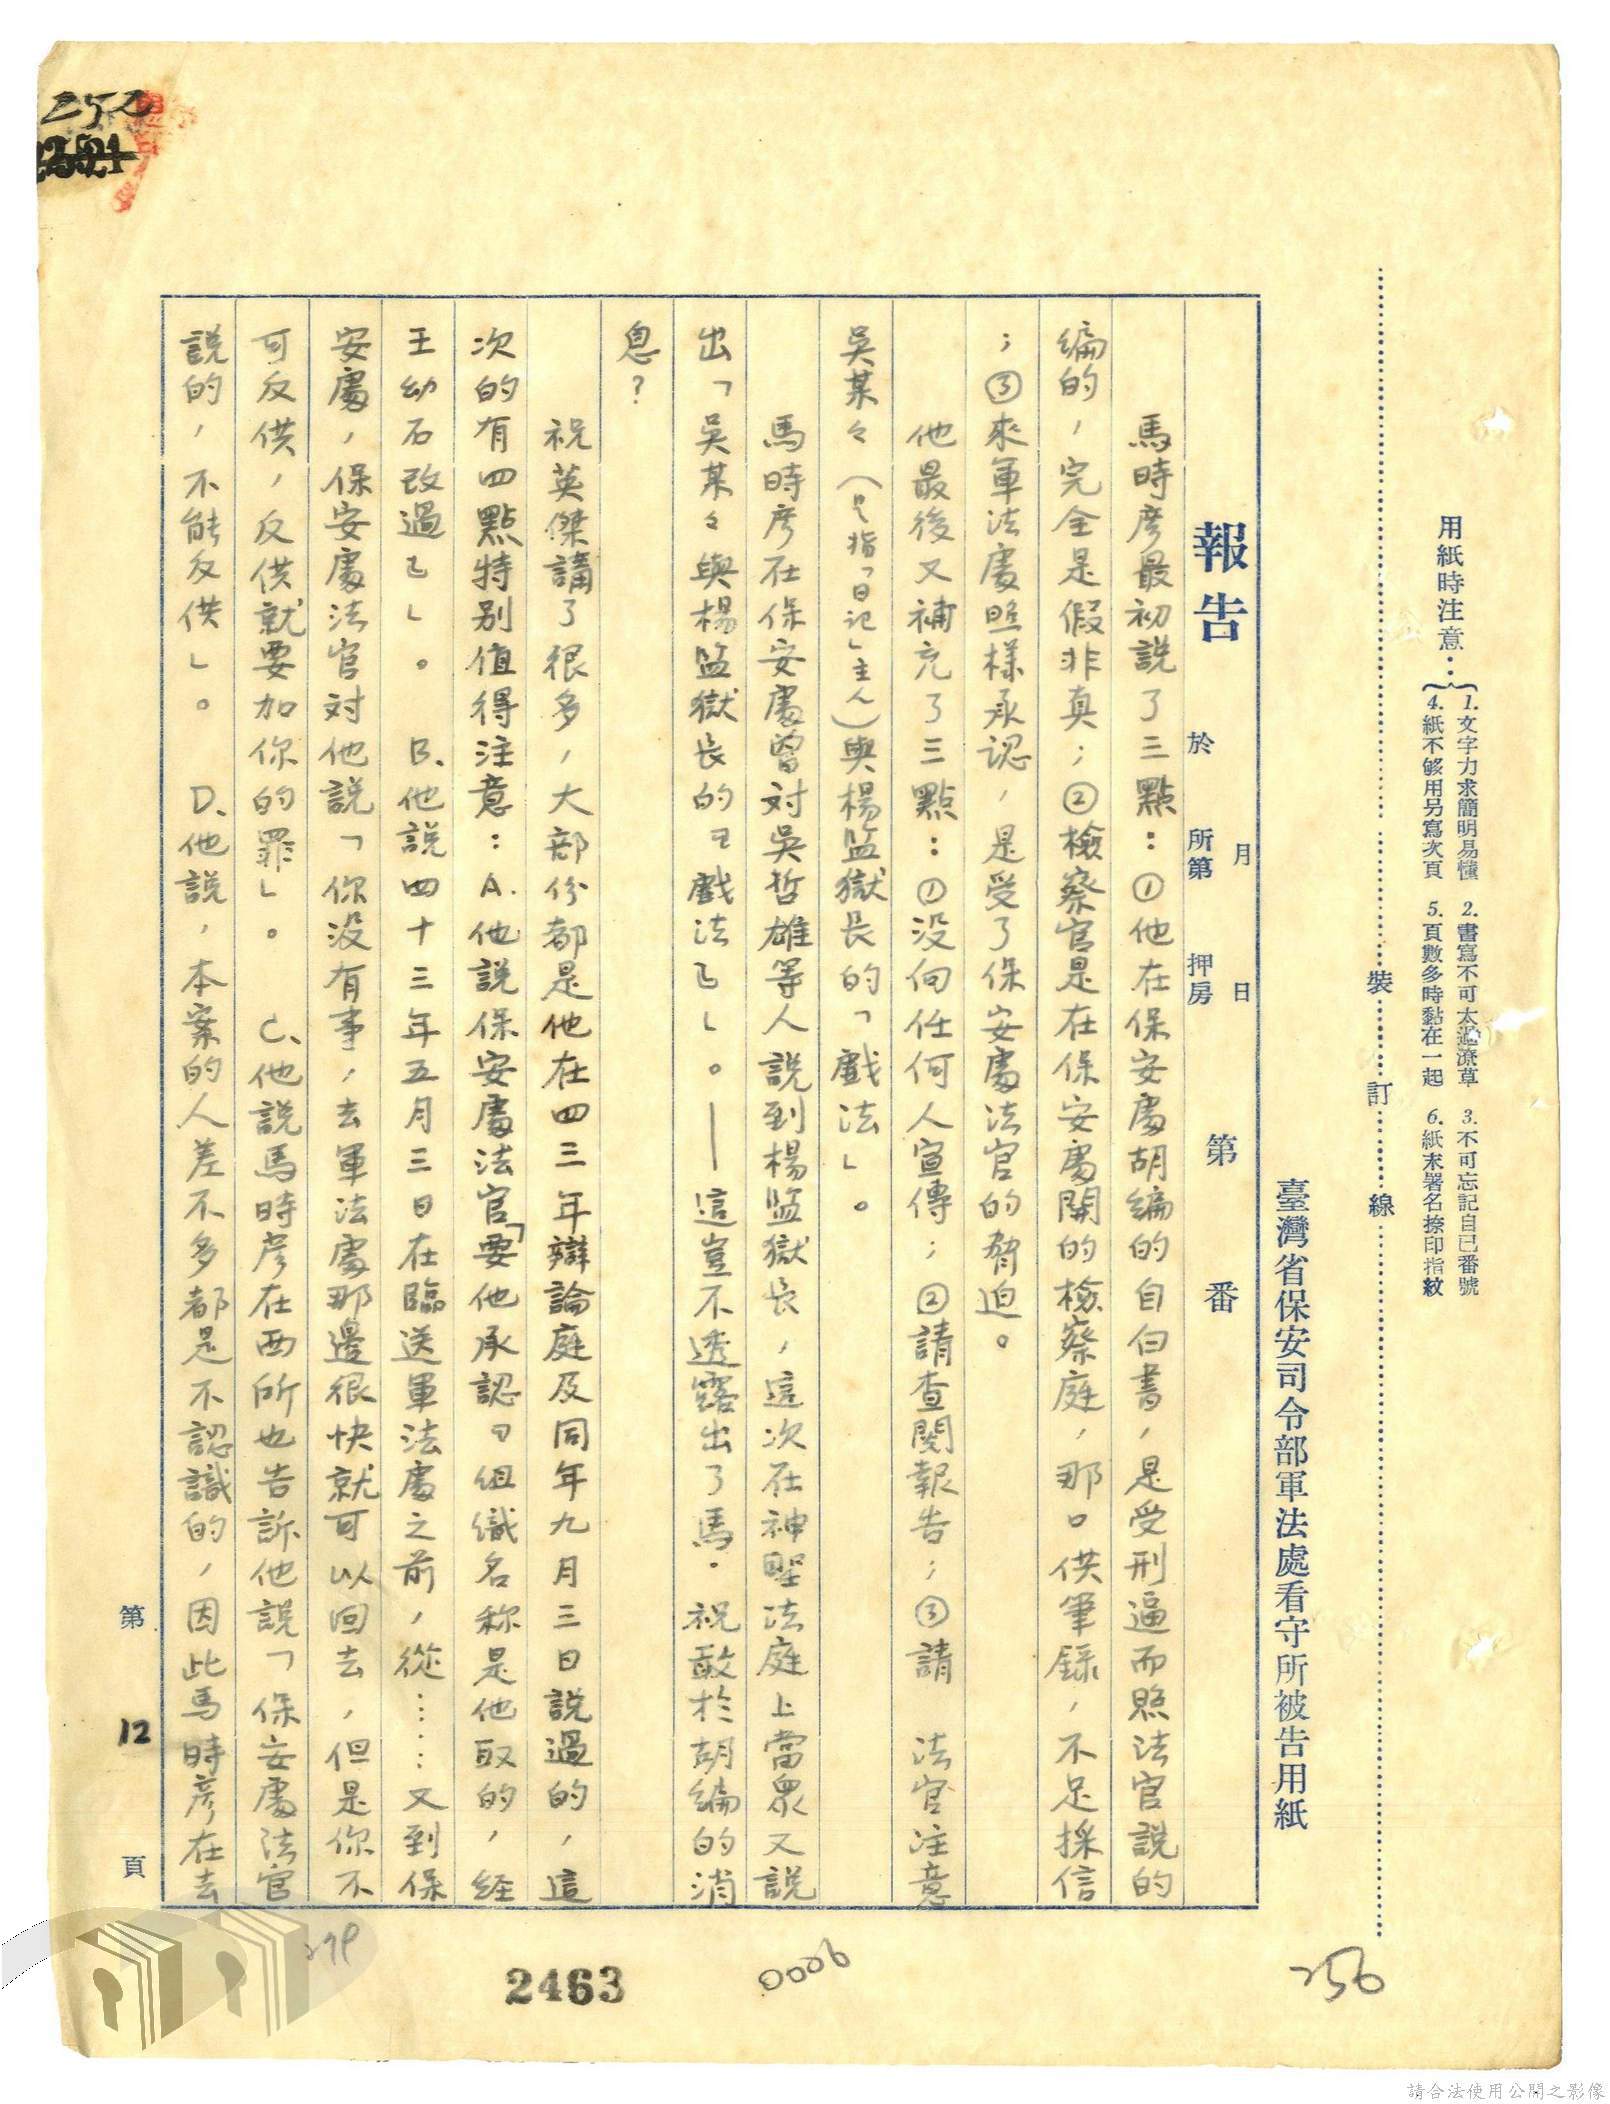 用紙時注意：
1.文字力求簡明易懂　2.書寫不可太過潦草　3.不可忘記自己番號
4.紙不夠用另寫次頁　5.頁數多時黏在一起　6.紙末署名捺印指紋
裝　訂　線
臺灣省保安司令部軍法處看守所被告用紙
報告
月　日　第　番
於　所第　押房
馬時彥最初說了三點：①他在保安處胡編的自白書，是受刑逼而照法官說的
編的，完全是假非真；②檢察官是在保安處開的檢察庭，那口供筆錄，不足採信
；③來軍法處照樣承認，是受了保安處法官的脅迫。
他最後又補充了三點：①没向任何人宣傳；②請查閱報告；③請　法官注意
吳某々（是指「日記」主人）與楊監獄長的「戲法」。
馬時彥在保安處曾对吳哲雄等人說到楊監獄長，這次在神聖法庭上當眾又說
出「吳某々與楊監獄長的『戲法』」。——這豈不透露出了馬．祝敢於胡編的消
息？
祝英傑講了很多，大部份都是他在四三年辯論庭及同年九月三日說過的，這
次的有四點特别值得注意：A.他說保安處法官「要他承認『组織名称是他取的，经
王幼石改過』」。　B、他說四十三年五月三日在臨送軍法處之前，從……又到保
安處，保安處法官对他說「你没有事，去軍法處那邊很快就可以回去，但是你不
可反供，反供就要加你的罪」。　C、他說馬時彥在西所也告訴他說「保安處法官
說的，不能反供」。　D、他說，本案的人差不多都是不認識的，因此馬時彥在去
第　12　頁
252
2463
0006
256
279
請合法使用公開之影像